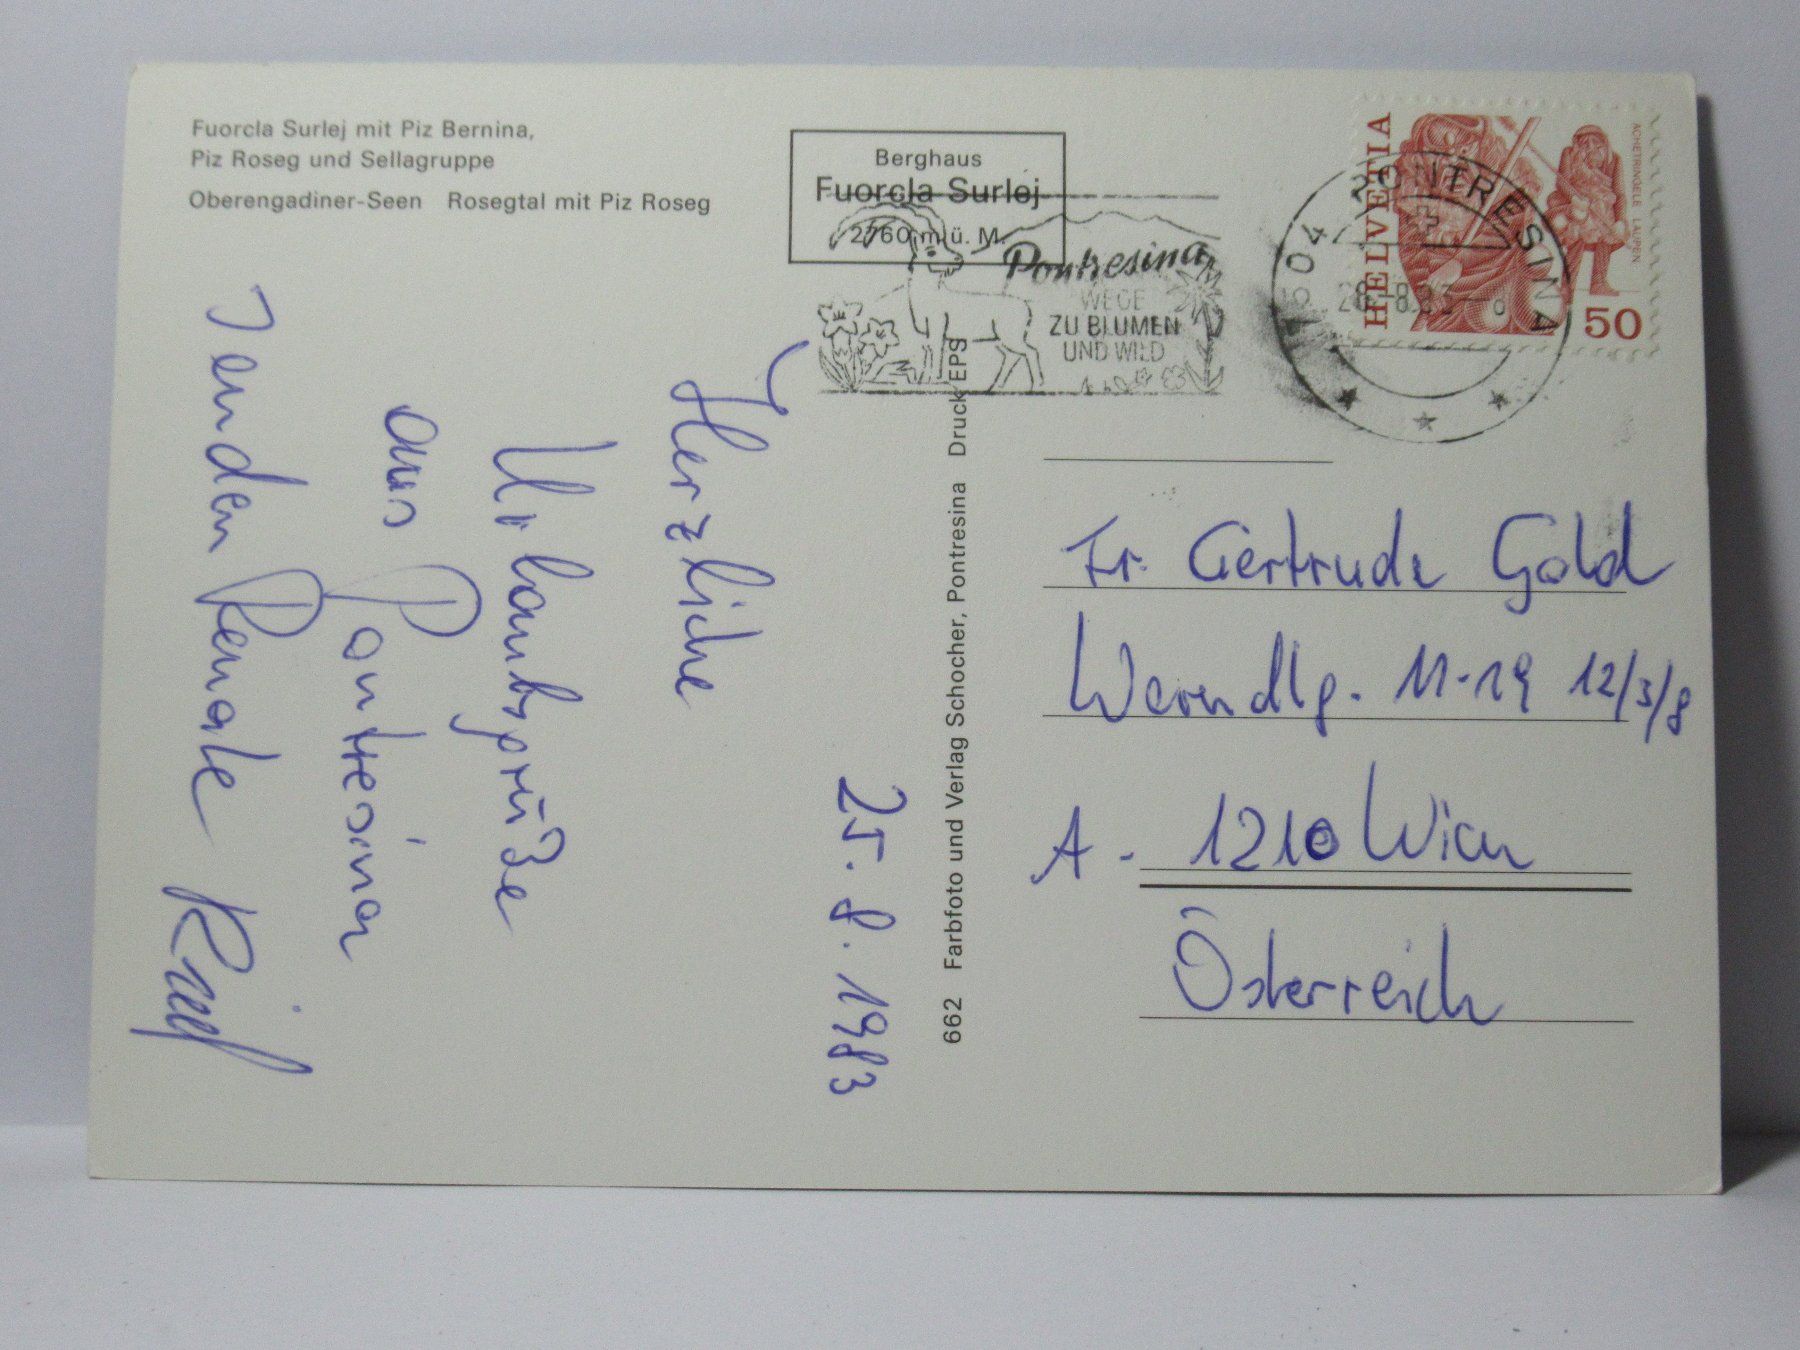 Fuorcla Surlej mit Piz Bernina,
Piz Roseg und Sellagruppe
Oberengadiner-Seen Rosegtal mit Piz Roseg
Berghaus
Fuorcla Surlej
2760 m ü. M.
Pontresina
WEGE
ZU BLUMEN
UND WILD
PONTRESINA
HELVETIA
ACHETRINGELE LAUPEN
50
25. 8. 1983
Herzliche
Urlaubsgrüße
aus Pontresina
senden Renate
662 Farbfoto und Verlag Schocher, Pontresina Druck EPS
Fr. Gertrude Gold
Werndlg. 11-19 12/3/8
A - 1210 Wien
Österreich